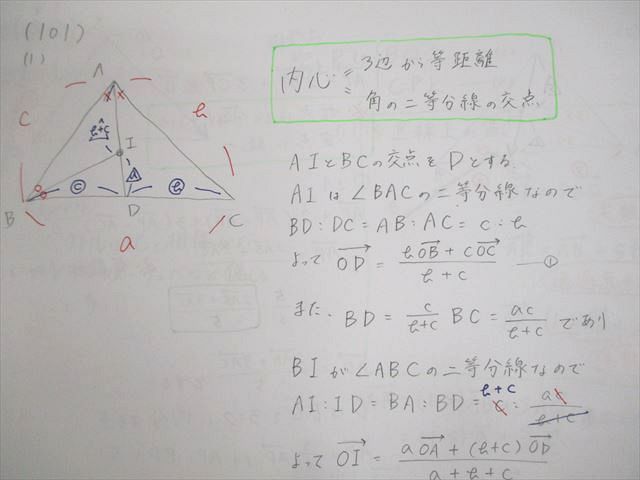 (101)
(1)
内心 3辺から等距離
角の二等分線の交点
A
c
b
b+c
I
a
c
b
B
D
C
a
AIとBCの交点をDとする.
AIは∠BACの二等分線なので
BD:DC = AB:AC = c:b
よって \overrightarrow{OD} = \frac{b\overrightarrow{OB} + c\overrightarrow{OC}}{b+c} —①
また、BD = \frac{c}{b+c} BC = \frac{ac}{b+c} であり
BIが∠ABCの二等分線なので
b+c
AI:ID = BA:BD = c : \frac{ac}{b+c}
よって \overrightarrow{OI} = \frac{a\overrightarrow{OA} + (b+c)\overrightarrow{OD}}{a+b+c}